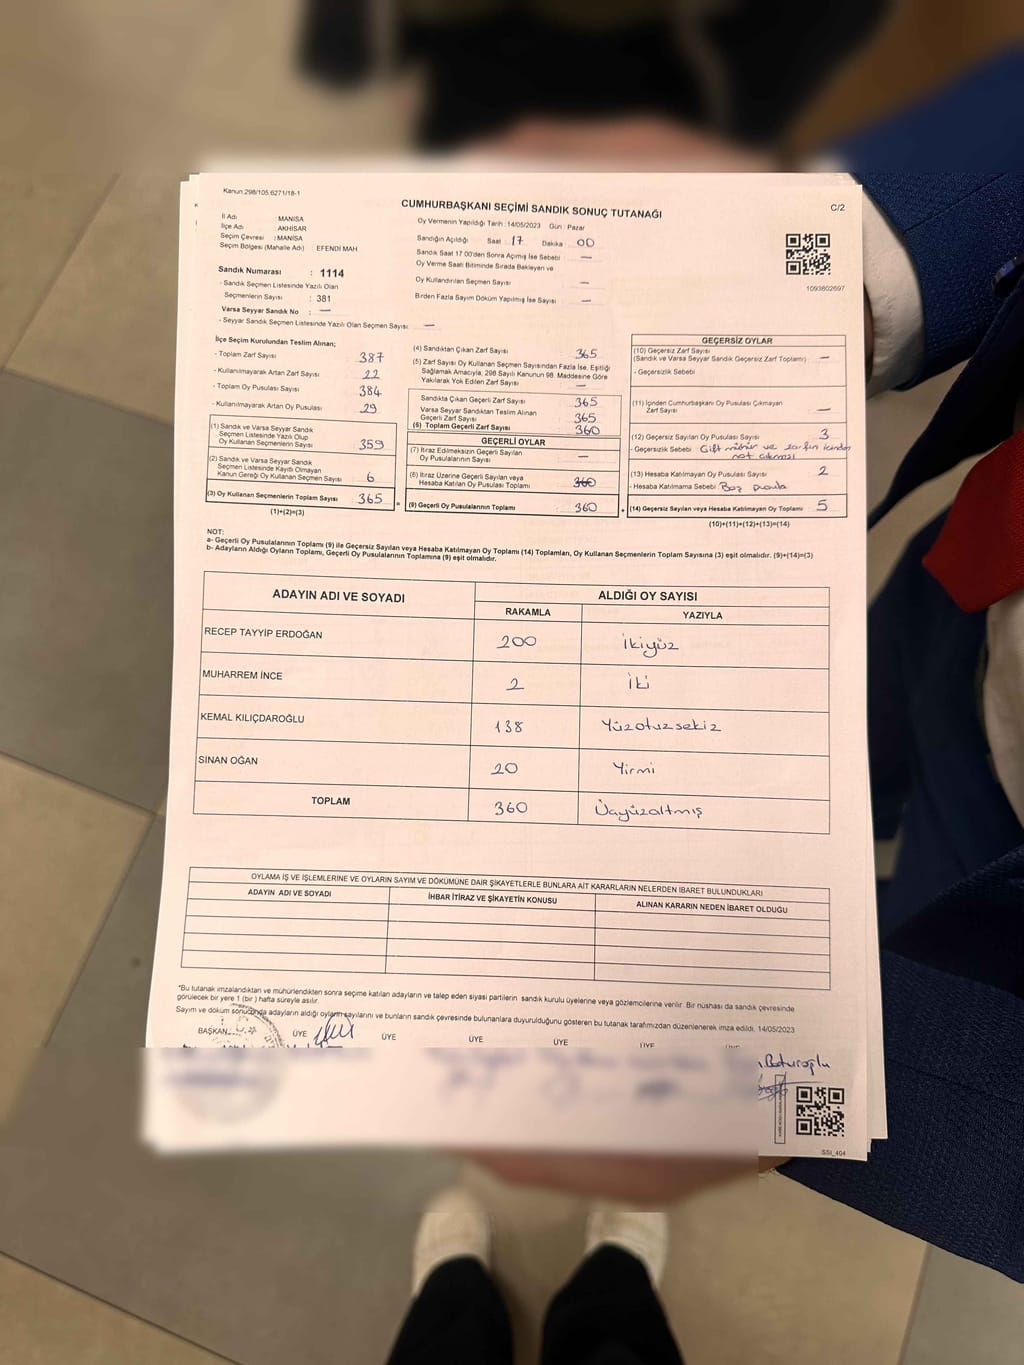 Kanun.298/105.6271/18-1
CUMHURBAŞKANI SEÇİMİ SANDIK SONUÇ TUTANAĞI
C/2
İl Adı : MANİSA
İlçe Adı : AKHİSAR
Seçim Çevresi : MANİSA
Seçim Bölgesi (Mahalle Adı) EFENDİ MAH.
Oy Vermenin Yapıldığı Tarih : 14/05/2023 Gün : Pazar
Sandığın Açıldığı Saat 17 Dakika 00
Sandık Saat 17:00'den Sonra Açılmış İse Sebebi —
Oy Verme Saati Bitiminde Sırada Bekleyen ve
Oy Kullandırılan Seçmen Sayısı : —
Birden Fazla Sayım Döküm Yapılmış İse Sayısı : —
1093802697
Sandık Numarası : 1114
- Sandık Seçmen Listesinde Yazılı Olan
Seçmenlerin Sayısı : 381
Varsa Seyyar Sandık No : —
- Seyyar Sandık Seçmen Listesinde Yazılı Olan Seçmen Sayısı : —
İlçe Seçim Kurulundan Teslim Alınan;
- Toplam Zarf Sayısı 387
- Kullanılmayarak Artan Zarf Sayısı 22
- Toplam Oy Pusulası Sayısı 384
- Kullanılmayarak Artan Oy Pusulası 29
(1) Sandık ve Varsa Seyyar Sandık
Seçmen Listesinde Yazılı Olup
Oy Kullanan Seçmenlerin Sayısı 359
(2) Sandık ve Varsa Seyyar Sandık
Seçmen Listesinde Kayıtlı Olmayan
Kanun Gereği Oy Kullanan Seçmen Sayısı 6
(3) Oy Kullanan Seçmenlerin Toplam Sayısı 365
(1)+(2)=(3)
(4) Sandıktan Çıkan Zarf Sayısı 365
(5) Zarf Sayısı Oy Kullanan Seçmen Sayısından Fazla İse, Eşitliği
Sağlamak Amacıyla, 298 Sayılı Kanunun 98. Maddesine Göre
Yakılarak Yok Edilen Zarf Sayısı —
Sandıkta Çıkan Geçerli Zarf Sayısı 365
Varsa Seyyar Sandıktan Teslim Alınan
Geçerli Zarf Sayısı 365
(6) Toplam Geçerli Zarf Sayısı 360
GEÇERLİ OYLAR
(7) İtiraz Edilmeksizin Geçerli Sayılan
Oy Pusulalarının Sayısı —
(8) İtiraz Üzerine Geçerli Sayılan ve
Hesaba Katılan Oy Pusulası Toplamı 360
= (9) Geçerli Oy Pusulalarının Toplamı 360 +
GEÇERSİZ OYLAR
(10) Geçersiz Zarf Sayısı
(Sandık ve Varsa Seyyar Sandık Geçersiz Zarf Toplamı) —
- Geçersizlik Sebebi
(11) İçinden Cumhurbaşkanı Oy Pusulası Çıkmayan
Zarf Sayısı —
(12) Geçersiz Sayılan Oy Pusulası Sayısı 3
- Geçersizlik Sebebi : Çift mühür ve zarfın içinden
not çıkması
(13) Hesaba Katılmayan Oy Pusulası Sayısı 2
- Hesaba Katılmama Sebebi Boş pusula
(14) Geçersiz Sayılan veya Hesaba Katılmayan Oy Toplamı 5
(10)+(11)+(12)+(13)=(14)
NOT:
a- Geçerli Oy Pusulalarının Toplamı (9) ile Geçersiz Sayılan veya Hesaba Katılmayan Oy Toplamı (14) Toplamları, Oy Kullanan Seçmenlerin Toplam Sayısına (3) eşit olmalıdır. (9)+(14)=(3)
b- Adayların Aldığı Oyların Toplamı, Geçerli Oy Pusulalarının Toplamına (9) eşit olmalıdır.
ADAYIN ADI VE SOYADI
ALDIĞI OY SAYISI
RAKAMLA YAZIYLA
RECEP TAYYİP ERDOĞAN 200 İkiyüz
MUHARREM İNCE 2 İki
KEMAL KILIÇDAROĞLU 138 Yüzotuzsekiz
SİNAN OĞAN 20 Yirmi
TOPLAM 360 Üçyüzaltmış
OYLAMA İŞ VE İŞLEMLERİNE VE OYLARIN SAYIM VE DÖKÜMÜNE DAİR ŞİKAYETLERLE BUNLARA AİT KARARLARIN NELERDEN İBARET BULUNDUKLARI
ADAYIN ADI VE SOYADI İHBAR İTİRAZ VE ŞİKAYETİN KONUSU ALINAN KARARIN NEDEN İBARET OLDUĞU
*Bu tutanak imzalandıktan ve mühürlendikten sonra seçime katılan adayların ve talep eden siyasi partilerin sandık kurulu üyelerine veya gözlemcilerine verilir. Bir nüshası da sandık çevresinde
görülecek bir yere 1 (bir) hafta süreyle asılır.
Sayım ve döküm sonucunda adayların aldığı oyların sayılarını ve bunların sandık çevresinde bulunanlara duyurulduğunu gösteren bu tutanak tarafımızdan düzenlenerek imza edildi. 14/05/2023
BAŞKAN ÜYE ÜYE ÜYE ÜYE ÜYE
SSI_404